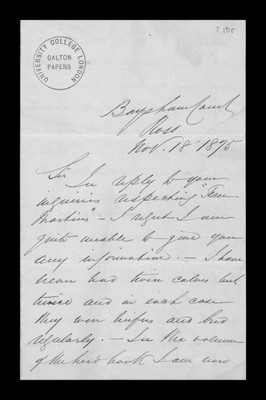 UNIVERSITY COLLEGE LONDON
GALTON
PAPERS
Baysham Court
Ross
Nov. 18 1875
Sir In reply to your
inquiries respecting "Free
Martins" - I regret I am
quite unable to give you
any information. - I have
never had twin calves but
twice and in each case
they were heifers and bred
regularly. - In the volumes
of the herd book I am now